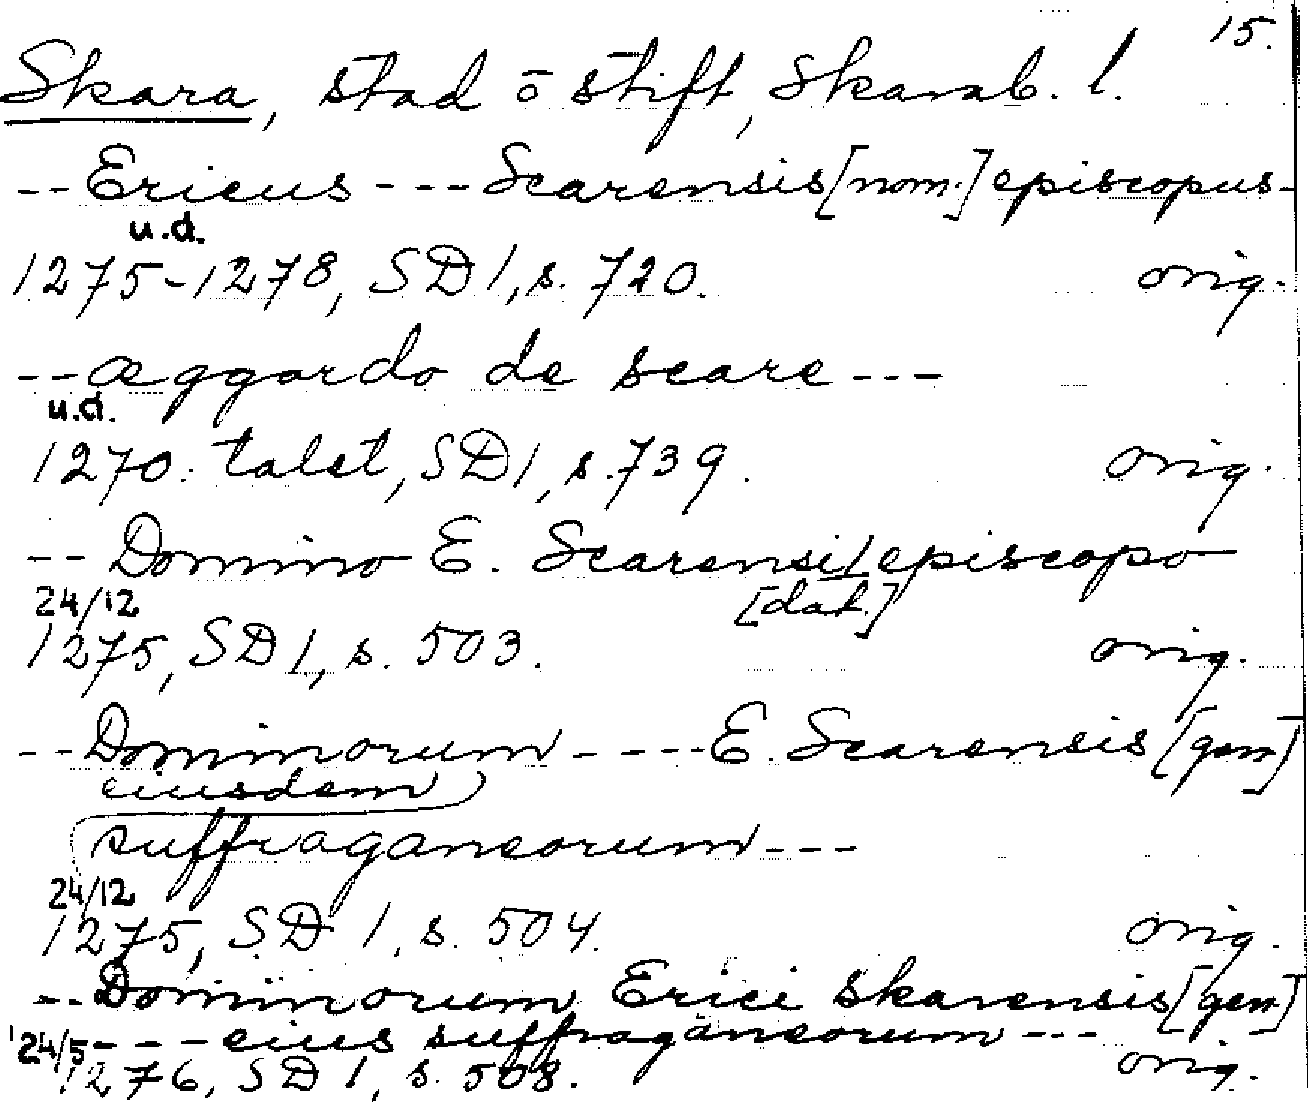 15.
Skara, stad o stift, Skarab. l.
-- Ericus --- Scarensis [nom.] episcopus -
u.d.
1275-1278, SD 1, s. 720. orig.
-- æggardo de scare ---
u.d.
1270. talet, SD 1, s. 739. orig.
-- Domino E. Scarensi/episcopo
[dat.]
24/12
1275, SD 1, s. 503. orig.
-- Dominorum ---- E. Scarensis [gen]
eiusdem
suffraganeorum ---
24/12
1275, SD 1, s. 504. orig.
-- Dominorum Erici Skarensis [gen]
---- eius suffraganeorum ---
24/5
1276, SD 1, s. 508. orig.